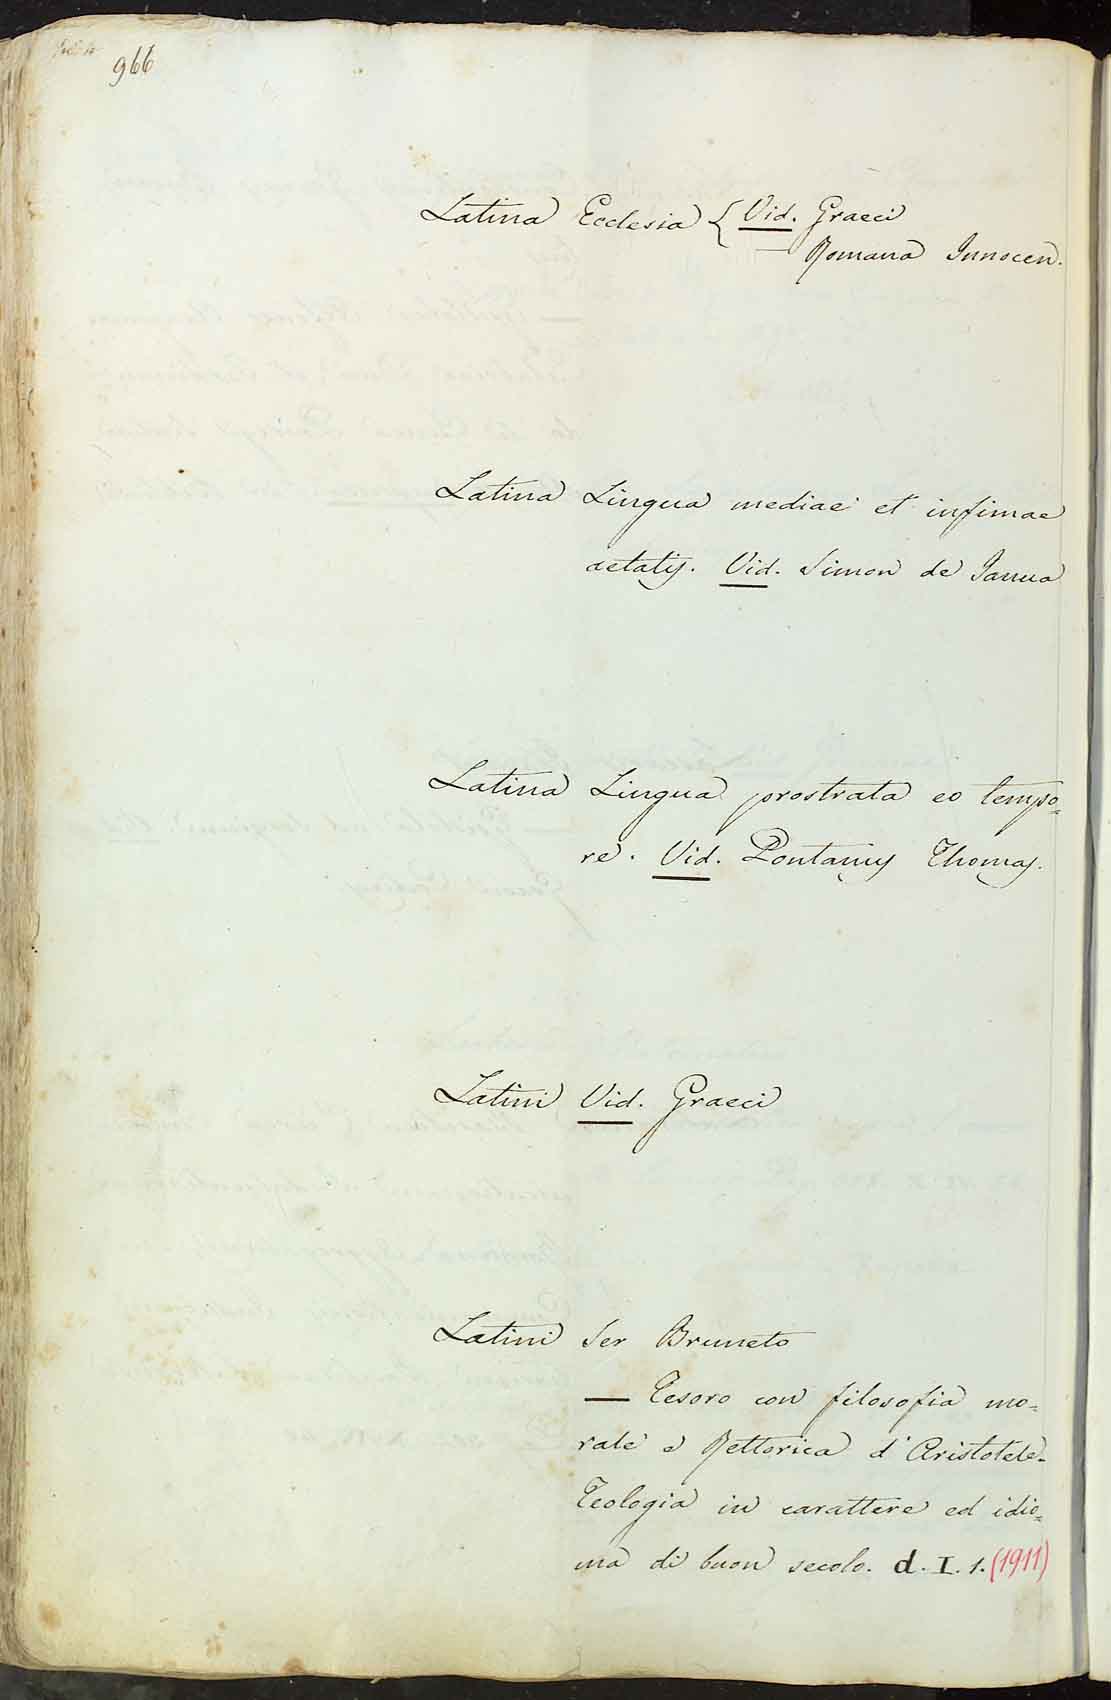 966
Latina Ecclesia { Vid. Graeci
— Romana Innocen.
Latina Lingua mediae et infimae
aetatis. Vid. Simon de Janua
Latina Lingua prostrata eo tempo=
re. Vid. Pontanus Thomas.
Latini Vid. Graeci
Latini Ser Bruneto
— Tesoro con filosofia mo=
rale e Rettorica d'Aristotele.
Teologia in carattere ed idio=
ma di buon secolo. d. I. 1. (1911)